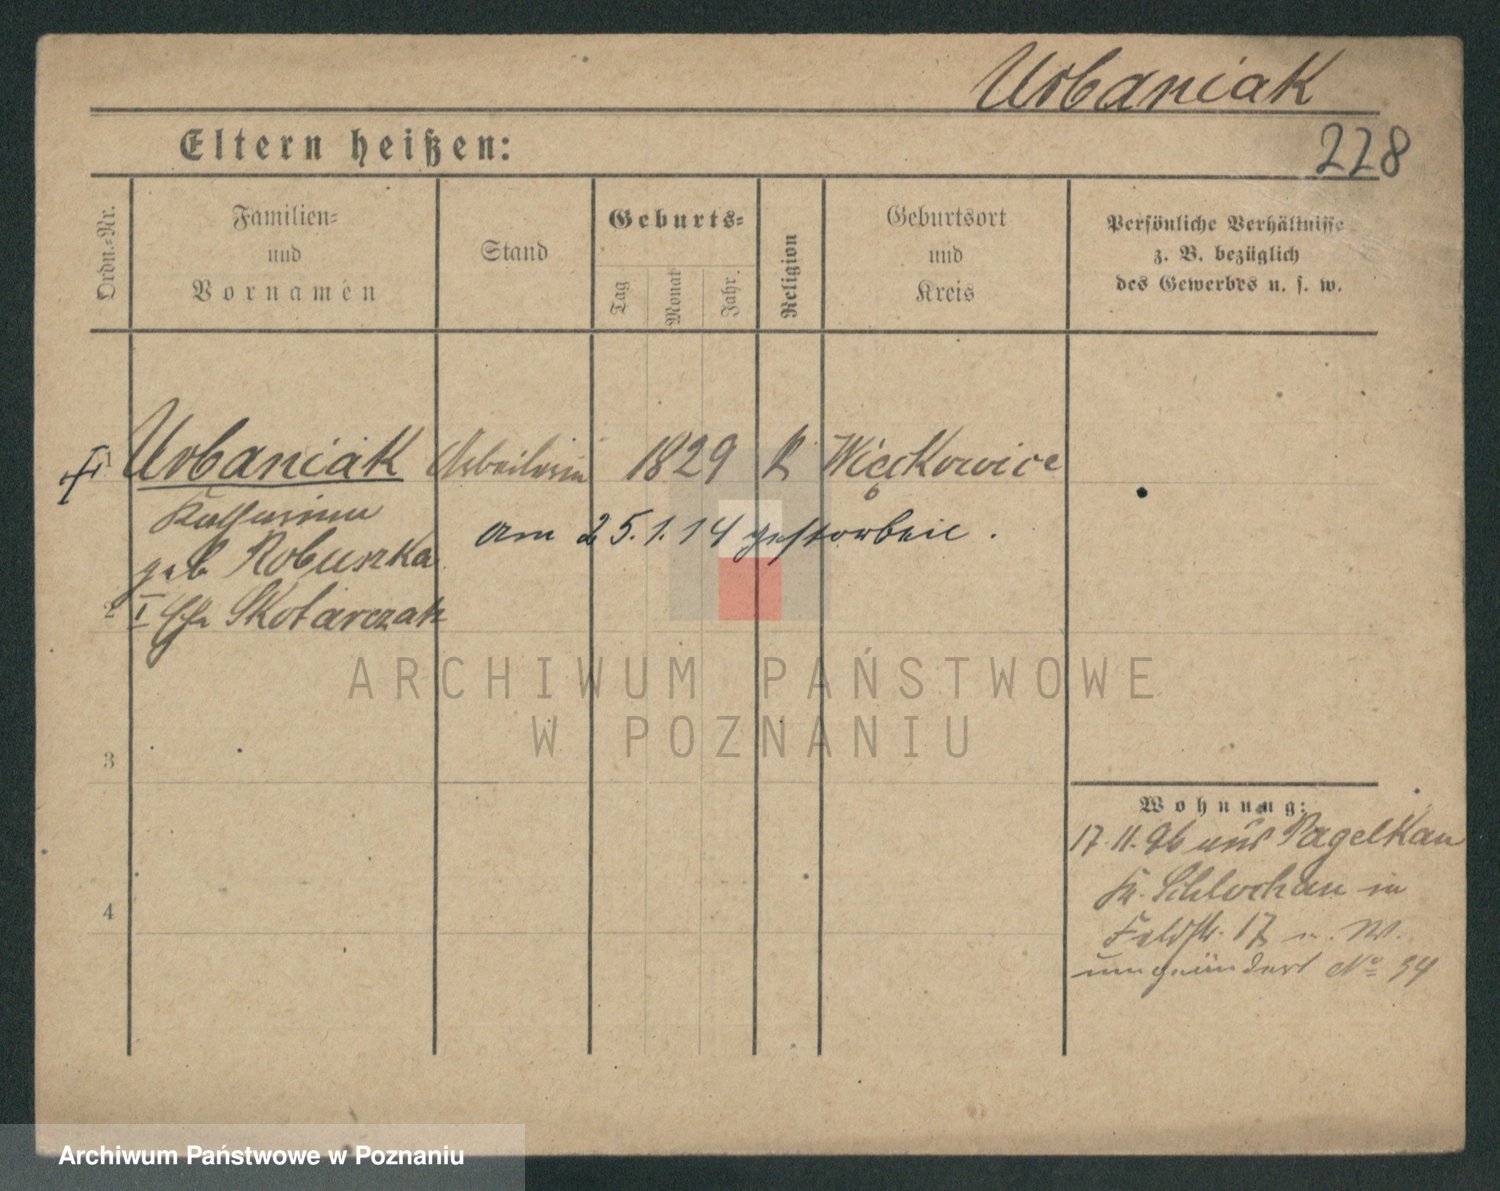 Urbaniak
Eltern heißen:
228
Ordn.-Nr.
Familien-
und
Vornamen
Stand
Geburts-
Tag
Monat
Jahr.
Religion
Geburtsort
und
Kreis
Persönliche Verhältnisse
z. B. bezüglich
des Gewerbes u. s. w.
1 Urbaniak Arbeiterin 1829 K Więckowice
Katharina
am 25.1.14 gestorben.
geb Robuszka
2 I Ehe Skotarczak
3
4
Wohnung:
17. 11. 96 aus Pagelkau
Kr. Schlochau in
Feldstr. 17 n. W.
umgeändert No 34
ARCHIWUM PAŃSTWOWE
W POZNANIU
Archiwum Państwowe w Poznaniu